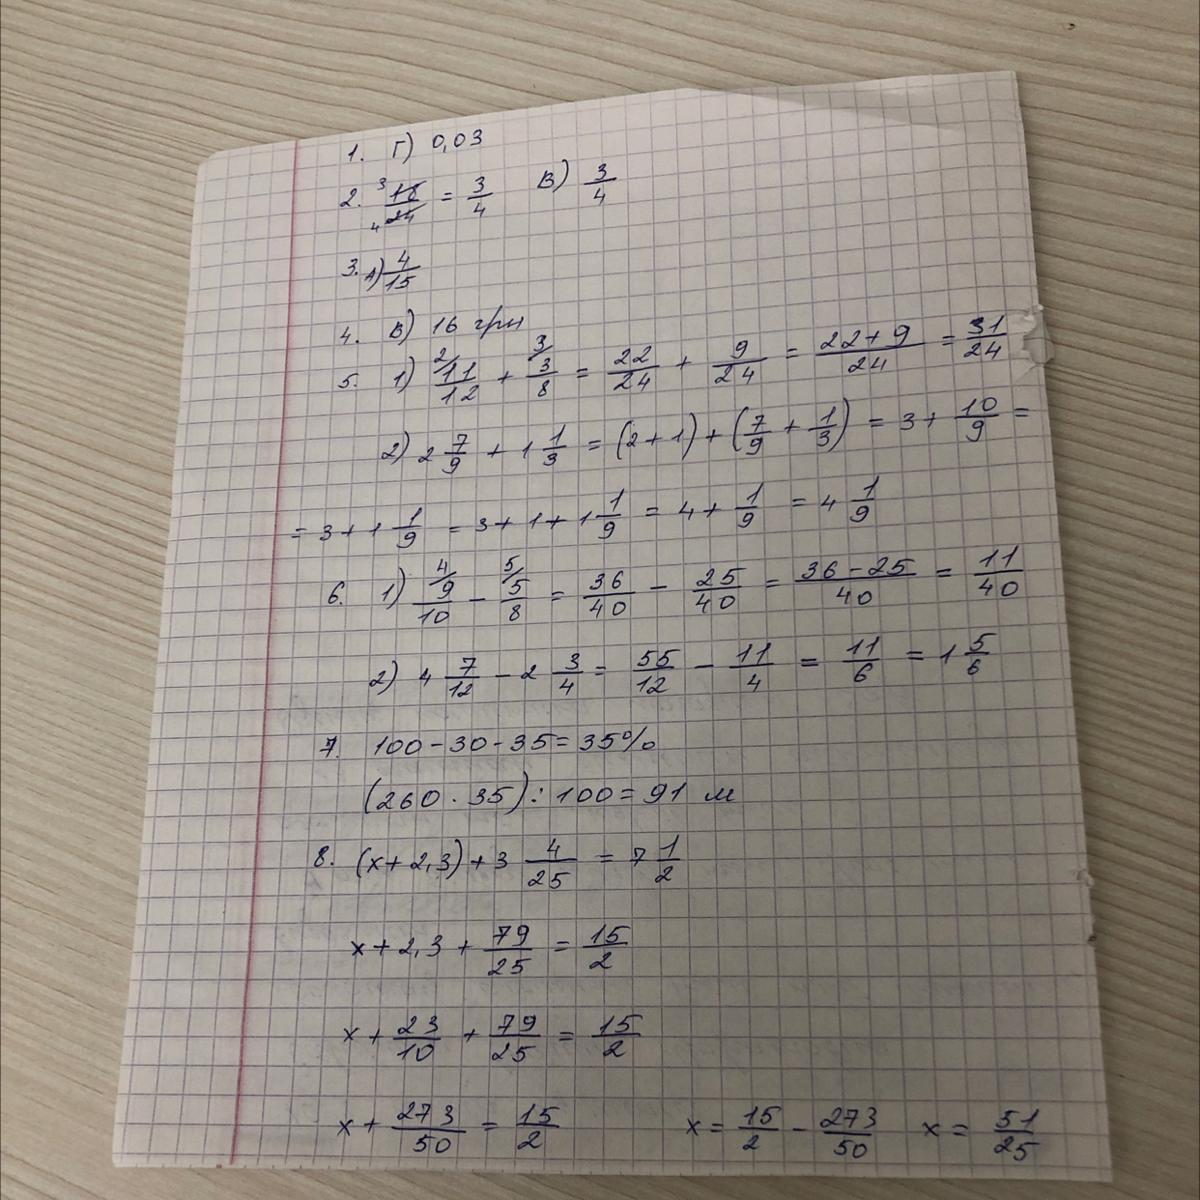 1. Г) 0,03
2. ³ 18/24 ₄ = 3/4 В) 3/4
3. А) 4/15
4. В) 16 грн
5. 1) ²⁄ 11/12 + ³⁄ 3/8 = 22/24 + 9/24 = (22+9)/24 = 31/24
2) 2 7/9 + 1 1/3 = (2+1) + (7/9 + 1/3) = 3 + 10/9 =
= 3 + 1 1/9 = 3 + 1 + 1 1/9 = 4 + 1/9 = 4 1/9
6. 1) ⁴⁄ 9/10 - ⁵⁄ 5/8 = 36/40 - 25/40 = (36-25)/40 = 11/40
2) 4 7/12 - 2 3/4 = 55/12 - 11/4 = 11/6 = 1 5/6
7. 100 - 30 - 35 = 35%
(260 · 35) : 100 = 91 м
8. (x + 2,3) + 3 4/25 = 7 1/2
x + 2,3 + 79/25 = 15/2
x + 23/10 + 79/25 = 15/2
x + 273/50 = 15/2 x = 15/2 - 273/50 x = 51/25